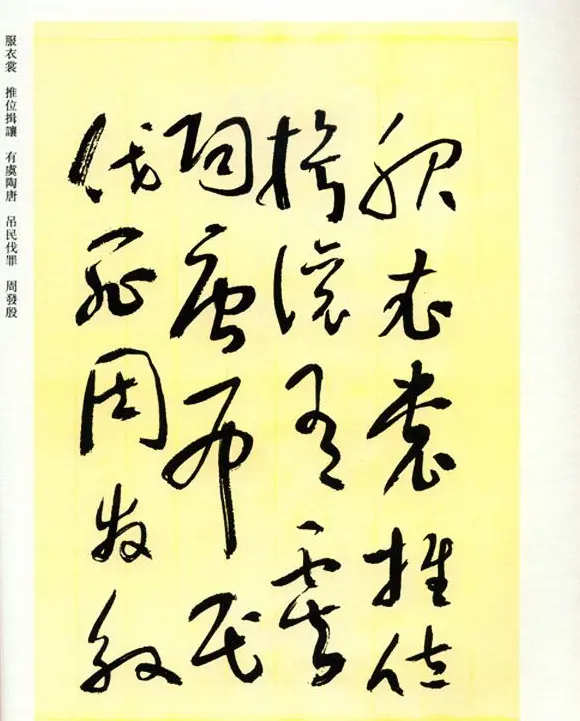 服衣裳推位
揖讓有虞
陶唐吊民
伐罪周發殷
服衣裳 推位揖讓 有虞陶唐 吊民伐罪 周發殷